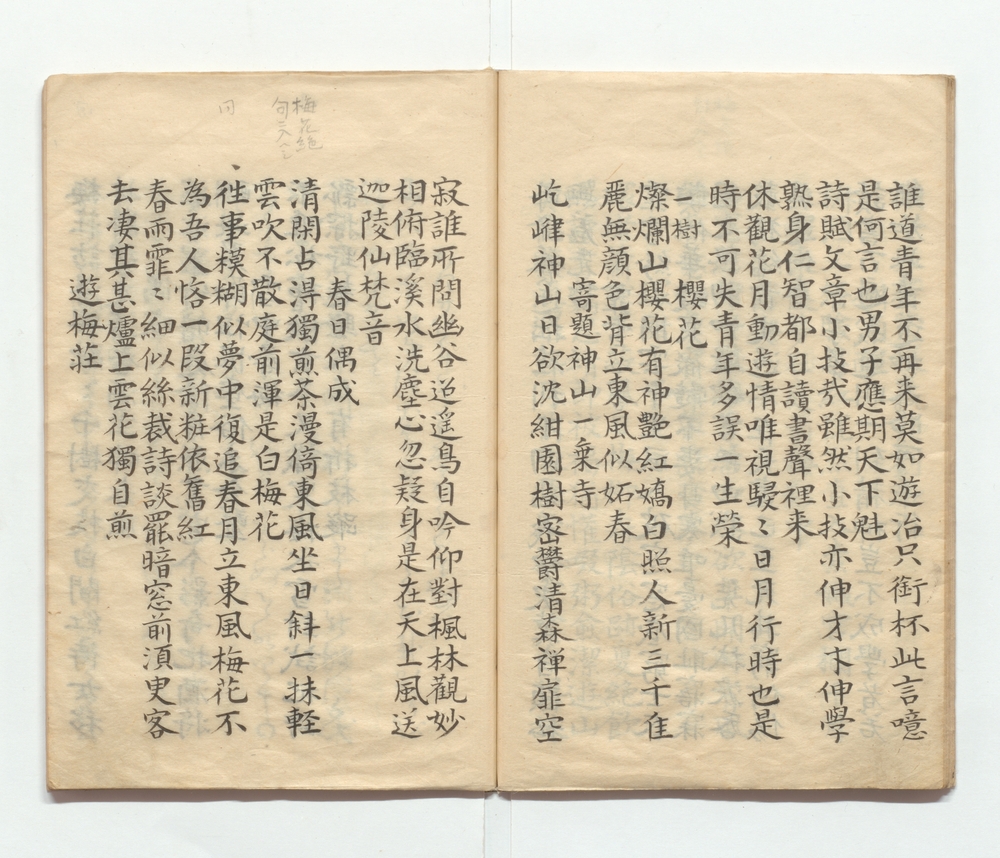 誰道青年不再来莫如遊冶只銜杯此言噫
是何言也男子應期天下魁
詩賦文章小技㢤雖然小技亦伸才才伸學
熟身仁智都自讀書聲裡来
休觀花月動遊情唯視駸〻日月行時也是
時不可失青年多誤一生榮
一樹櫻花
燦爛山櫻花有神艶紅嬌白照人新三千隹
麗無顔色背立東風似妬春
寄題神山一乗寺
屹嵂神山日欲沈紺園樹密欝清森禅扉空
寂誰所問幽谷迢遥鳥自吟仰對楓林觀妙
相俯臨溪水洗塵心忽疑身是在天上風送
迦陵仙梵音
春日偶成
清閑占淂獨煎茶漫倚東風坐日斜一抹軽
雲吹不散庭前渾是白梅花
徃事糢糊似夢中復追春月立東風梅花不
為吾人悋一段新粧依舊紅
春雨霏〻細似絲裁詩談罷暗窓前須臾客
去凄其甚爐上雲花獨自煎
遊梅莊
梅花絶
句
同